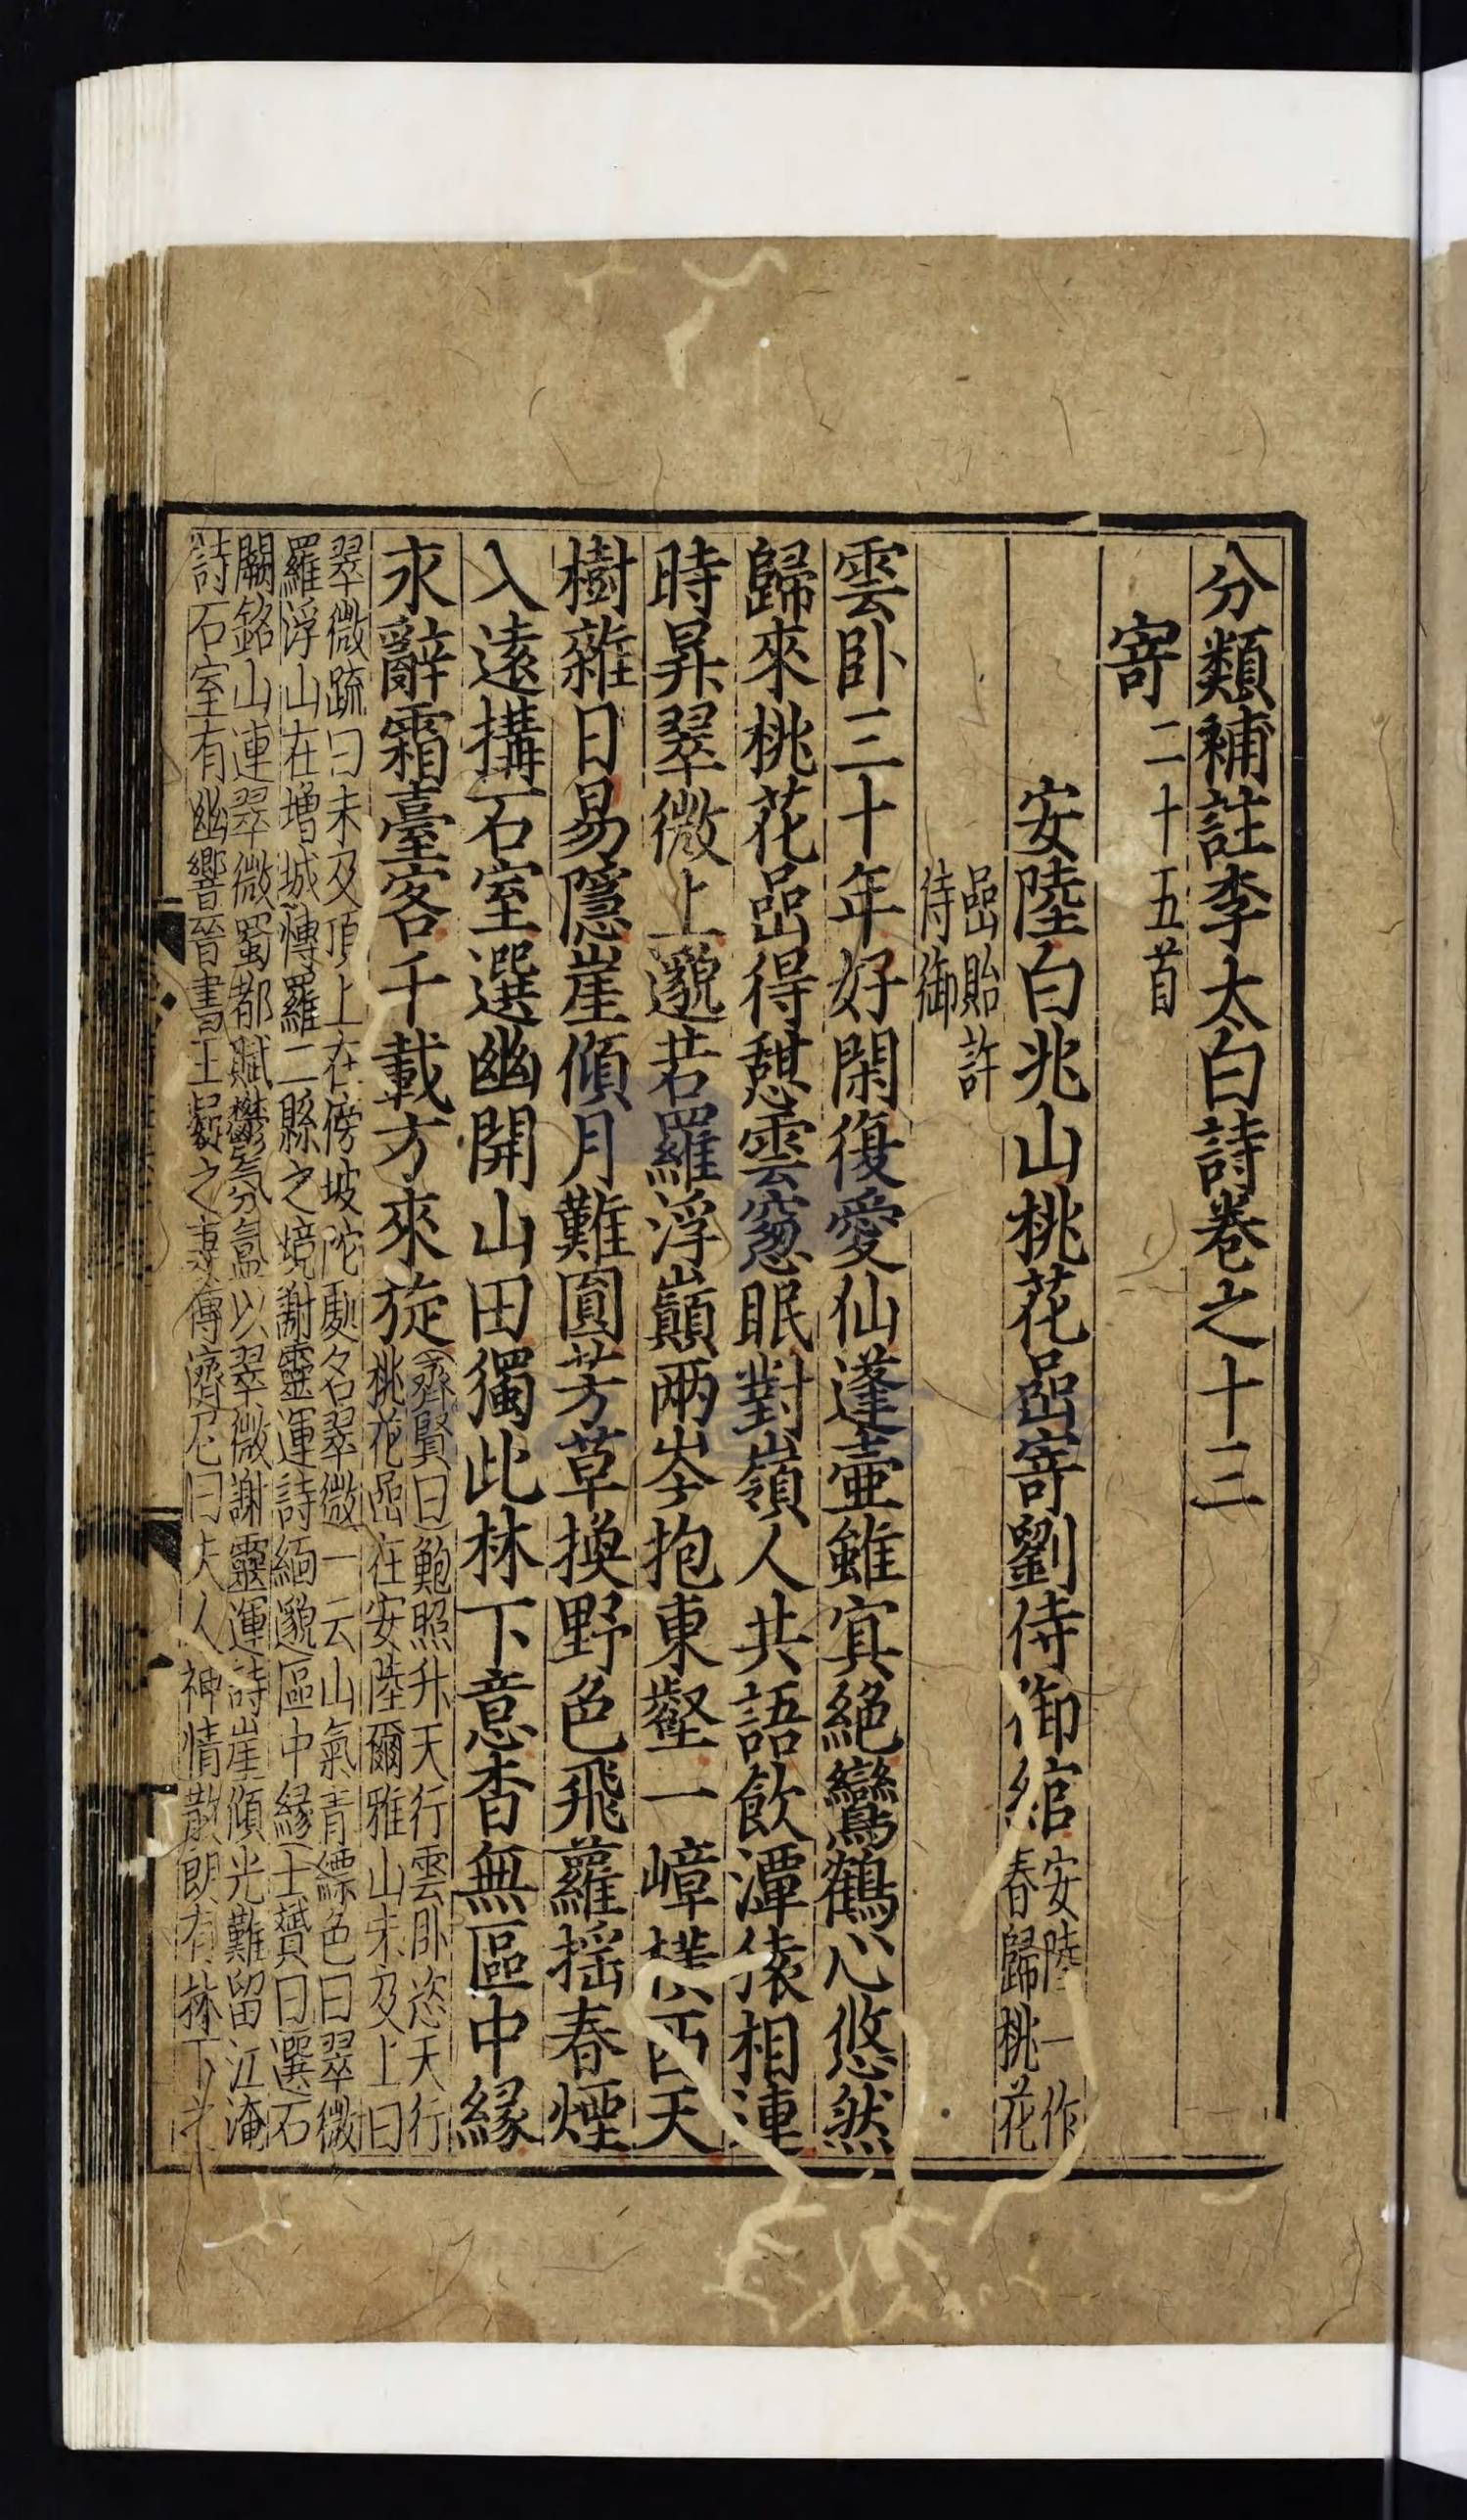 分類補註李太白詩卷之十三
寄二十五首
安陸白兆山桃花嵓寄劉侍御綰安陸一作
春歸桃花
嵓貽許
侍御
雲卧三十年好閑復愛仙蓬壷雖冥絶鸞鶴心悠然
歸來桃花嵓得憩雲窓眠對嶺人共語飲潭猿相連
時昇翠微上邈若羅浮巔兩岑抱東壑一嶂橫西天
樹雜日易隱崖傾月難圓芳草換野色飛蘿揺春煙
入逺搆石室選幽開山田獨此林下意杳無區中縁
永辭霜臺客千載方來旋齊賢曰鮑照升天行雲卧恣天行
桃花嵓在安陸爾雅山未及上曰
翠微䟽曰未及頂上在傍坡陀䖏名翠微一云山氣青縹色曰翠微
羅浮山在増城愽羅二縣之境謝靈運詩緬邈區中縁士贇曰選石
闕銘山連翠微蜀都賦鬱氛氳以翠微謝靈運詩崖傾光難留江淹
詩石室有幽響晉書王凝之妻傳濟尼曰夫人神情散朗有林下